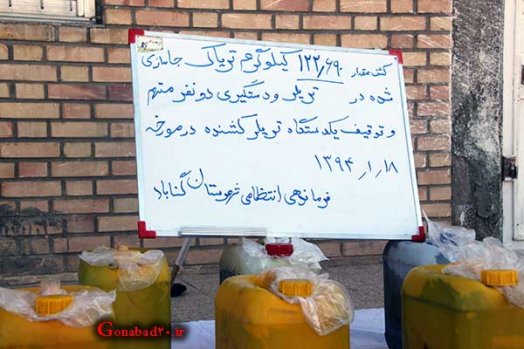 کشف مقدار ۱۲۲٫۶۹ کیلوگرم تریاک جاسازی
شده در تریلر و دستگیری دو نفر متهم
و توقیف یکدستگاه تریلر کشنده در مورخه
۱۳۹۴٫۱٫۱۸
فرماندهی انتظامی شهرستان گناباد
Gonabad۲۰.ir